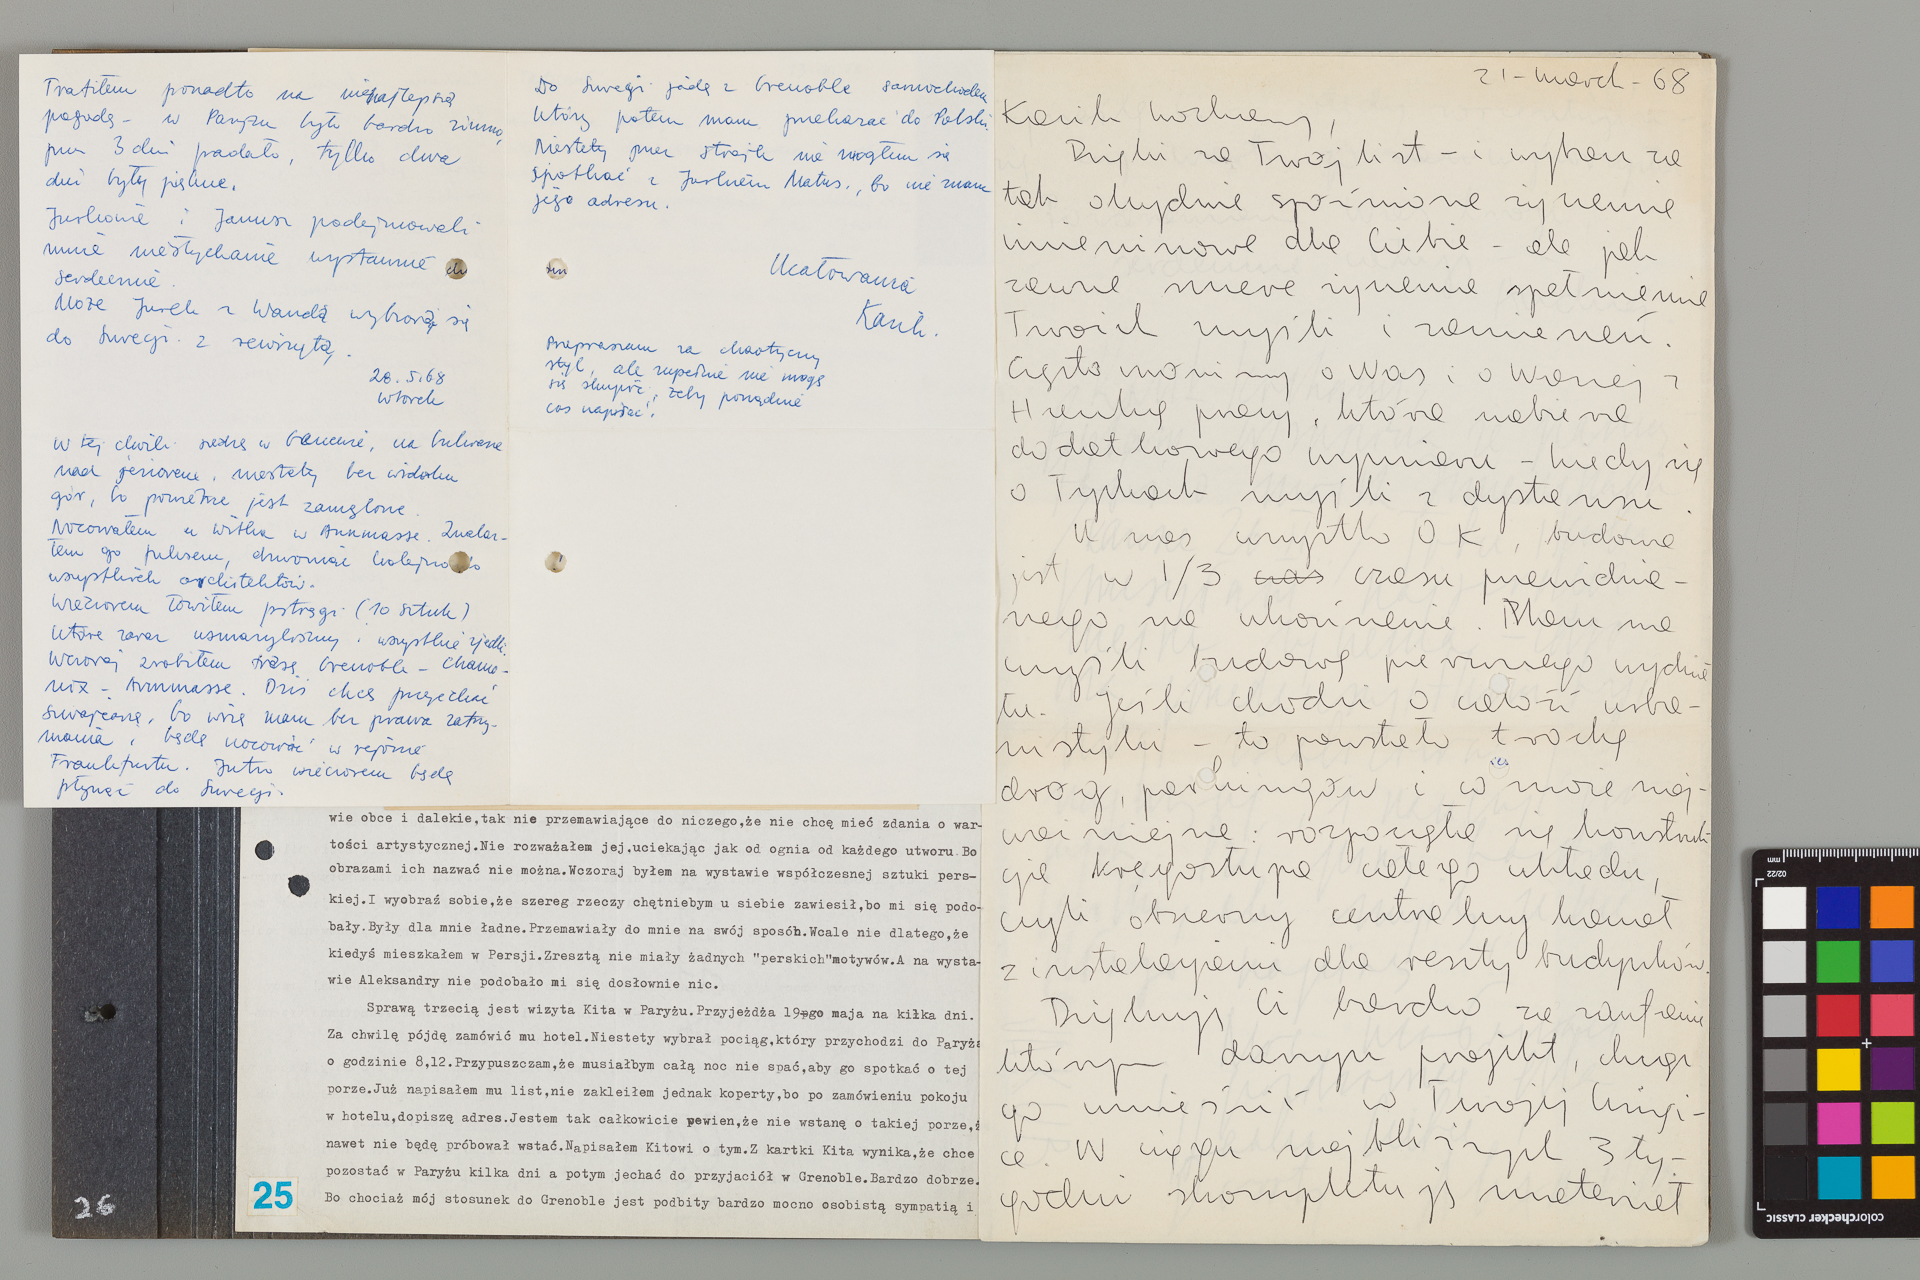 Trafiłem ponadto na nienajlepszą
pogodę – w Paryżu było bardzo zimno,
przez 3 dni padało, tylko dwa
dni były piękne.
Jurkowie i Janusz podejmowali
mnie niesłychanie wystawnie i
serdecznie.
Może Jurek z Wandą wybiorą się
do Szwecji z rewizytą.
28.5.68
wtorek
W tej chwili siedzę w Genewie, na bulwarze
nad jeziorem, niestety bez widoku
gór, bo powietrze jest zamglone.
Nocowałem u Witka w Annmasse. Znalaz-
łem go fuksem, dzwoniąc kolejno do
wszystkich architektów.
Wieczorem łowiłem pstrągi (10 sztuk)
które zaraz usmażyliśmy i wszystkie zjedli.
Wczoraj zrobiłem trasę Grenoble – Chamo-
nix – Annmasse. Dziś chcę przejechać
Szwajcarię, bo wizę mam bez prawa zatrzy-
mania, i będę nocować w rejonie
Frankfurtu. Jutro wieczorem będę
płynąć do Szwecji.
Do Szwecji jadę z Grenoble samochodem
który potem mam przekazać do Polski.
Niestety przez strajk nie mogłem się
spotkać z Jurkiem Matus., bo nie znam
jego adresu.
Ucałowania
Karik.
Przepraszam za chaotyczny
styl, ale zupełnie nie mogę
się skupić, żeby porządnie
coś napisać.
wie obce i dalekie,tak nie przemawiające do niczego,że nie chcę mieć zdania o war-
tości artystycznej.Nie rozważałem jej.uciekając jak od ognia od każdego utworu.Bo
obrazami ich nazwać nie można.Wczoraj byłem na wystawie współczesnej sztuki pers-
kiej.I wyobraź sobie,że szereg rzeczy chętniebym u siebie zawiesił,bo mi się podo-
bały.Były dla mnie ładne.Przemawiały do mnie na swój sposób.Wcale nie dlatego,że
kiedyś mieszkałem w Persji.Zresztą nie miały żadnych "perskich"motywów.A na wysta-
wie Aleksandry nie podobało mi się dosłownie nic.
Sprawą trzecią jest wizyta Kita w Paryżu.Przyjeżdża 19-go maja na kilka dni.
Za chwilę pójdę zamówić mu hotel.Niestety wybrał pociąg,który przychodzi do Paryża
o godzinie 8,12.Przypuszczam,że musiałbym całą noc nie spać,aby go spotkać o tej
porze.Już napisałem mu list,nie zakleiłem jednak koperty,bo po zamówieniu pokoju
w hotelu,dopiszę adres.Jestem tak całkowicie pewien,że nie wstanę o takiej porze,ż
nawet nie będę próbował wstać.Napisałem Kitowi o tym.Z kartki Kita wynika,że chce
pozostać w Paryżu kilka dni a potym jechać do przyjaciół w Grenoble.Bardzo dobrze.
Bo chociaż mój stosunek do Grenoble jest podbity bardzo mocno osobistą sympatią i
25
26
21 – march – 68
Karik kochany,
Dzięki za Twój list – i wybacz za
tak ohydnie spóźnione życzenia
imieninowe dla Ciebie – ale jak
zawsze szczere życzenia spełnienia
Twoich myśli i zamierzeń.
Często mówimy o Was i o Waszej z
Heniką pracy, która nabiera
dodatkowego wymiaru – kiedy się
o Tychach myśli z dystansu.
U nas wszystko OK, budowa
jest w 1/3 czas czasu przewidzia-
nego na ukończenie. Mam na
myśli budowę pierwszego wydzia-
łu. Jeśli chodzi o całość urba-
nistyki – to powstało trochę
dróg, parkingów i co może naj-
ważniejsze: rozpoczęta się konstruk-
cja kręgosłupa całego układu,
czyli obszerny centralny kanał
z instalacjami dla reszty budynków.
Dziękuję Ci bardzo za zaufanie
którym darzysz projekt, chcąc
go umieścić w Twojej książ-
ce. W ciągu najbliższych 3 ty-
godni skompletuję materiał
mm
02/22
colorchecker CLASSIC